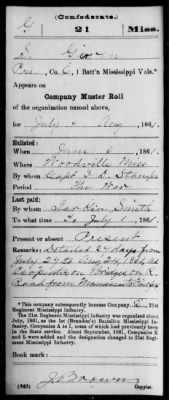 (Confederate.)
G 21 Miss.
Pvt., Co. C, 1 Batt'n Mississippi Vols.*
Appears on
Company Muster Roll
of the organization named above,
for July & Aug, 1861.
Enlisted:
When June 6, 1861.
Where Woodville Miss
By whom Capt. J. D. Stamps
Period The War
Last paid:
By whom Larkin Smith
To what time July 1, 1861.
Present or absent Present
Remarks: Detailed 24 days from
July 29 to Aug 24, 1861, as
on Bridge on R.
Road from Manassas to
*This company subsequently became Company, 21st
Regiment Mississippi Infantry.
The 21st Regiment Mississippi Infantry was organized about
July, 1861, as the 1st (Brandon's) Battalion Mississippi In-
fantry, Companies A to I, none of which had previously been
in the State service. About September, 1861, Companies K
and L were added and the designation changed to 21st Regi-
ment Mississippi Infantry.
Book mark:
(642) J Brown
Copyist.